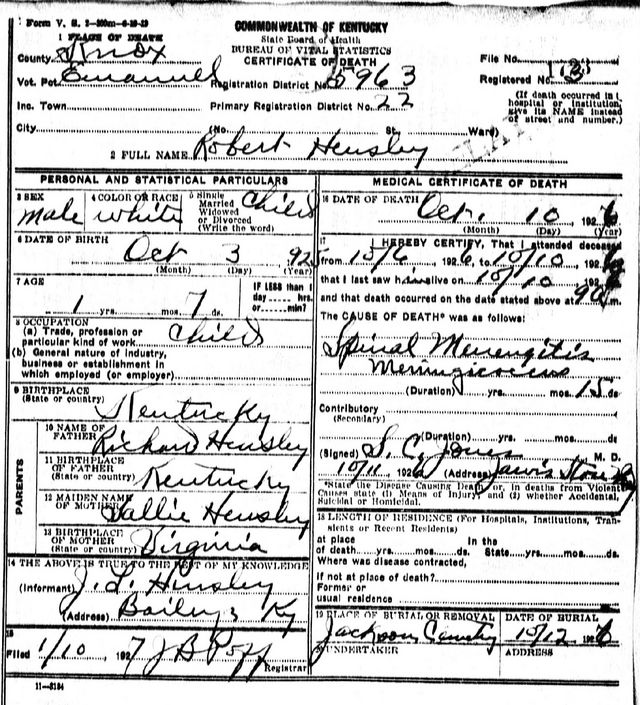 Form V. S. 2-300m-6-10-23
COMMONWEALTH OF KENTUCKY
State Board of Health
BUREAU OF VITAL STATISTICS
CERTIFICATE OF DEATH
1 PLACE OF DEATH
County Knox
Vot. Pct. Emanuel
Inc. Town
City
Registration District No. 5963
Primary Registration District No. 22
File No.
Registered No.
(If death occurred in a hospital or institution, give its NAME instead of street and number.)
(No. St. Ward)
2 FULL NAME Robert Hensley
PERSONAL AND STATISTICAL PARTICULARS
3 SEX
Male
4 COLOR OR RACE
white
5 Single
Married
Widowed
or Divorced
(Write the word)
Child
6 DATE OF BIRTH
Oct 3 1925
(Month) (Day) (Year)
7 AGE
1 yrs. 7 ds.
IF LESS than 1
day hrs.
or min.?
8 OCCUPATION
(a) Trade, profession or
particular kind of work Child
(b) General nature of industry,
business or establishment in
which employed (or employer)
9 BIRTHPLACE
(State or country) Kentucky
PARENTS
10 NAME OF
FATHER Richard Hensley
11 BIRTHPLACE
OF FATHER
(State or country) Kentucky
12 MAIDEN NAME
OF MOTHER Hensley
13 BIRTHPLACE
OF MOTHER
(State or country) Virginia
14 THE ABOVE IS TRUE TO THE BEST OF MY KNOWLEDGE
(Informant) J. L. Hensley
(Address) Baileys Ky
15
Filed 1/10 1927 J B
Registrar
11—3184
MEDICAL CERTIFICATE OF DEATH
16 DATE OF DEATH Oct. 10 1926
(Month) (Day) (Year)
17
I HEREBY CERTIFY, That I attended deceased
from 10/6 1926, to 10/10 1926
that I last saw him alive on 10/10 1926
and that death occurred on the date stated above at m.
The CAUSE OF DEATH* was as follows:
Spinal Menengitis
Meningicoccus
(Duration) yrs. mos. 15 ds
Contributory
(Secondary)
(Duration) yrs. mos. ds
(Signed) S. C. Jones M. D.
10/11 1926 (Address) Jarvis Store Ky
*State the Disease Causing Death or, in deaths from Violent
Causes state (1) Means of Injury; and (2) whether Accidental,
Suicidal or Homicidal.
18 LENGTH OF RESIDENCE (For Hospitals, Institutions, Transients or Recent Residents)
at place In the
of death yrs. mos. ds. State yrs. mos. ds.
Where was disease contracted,
if not at place of death?
Former or
usual residence
19 PLACE OF BURIAL OR REMOVAL
Jackson County
DATE OF BURIAL
10/12 1926
20 UNDERTAKER
ADDRESS